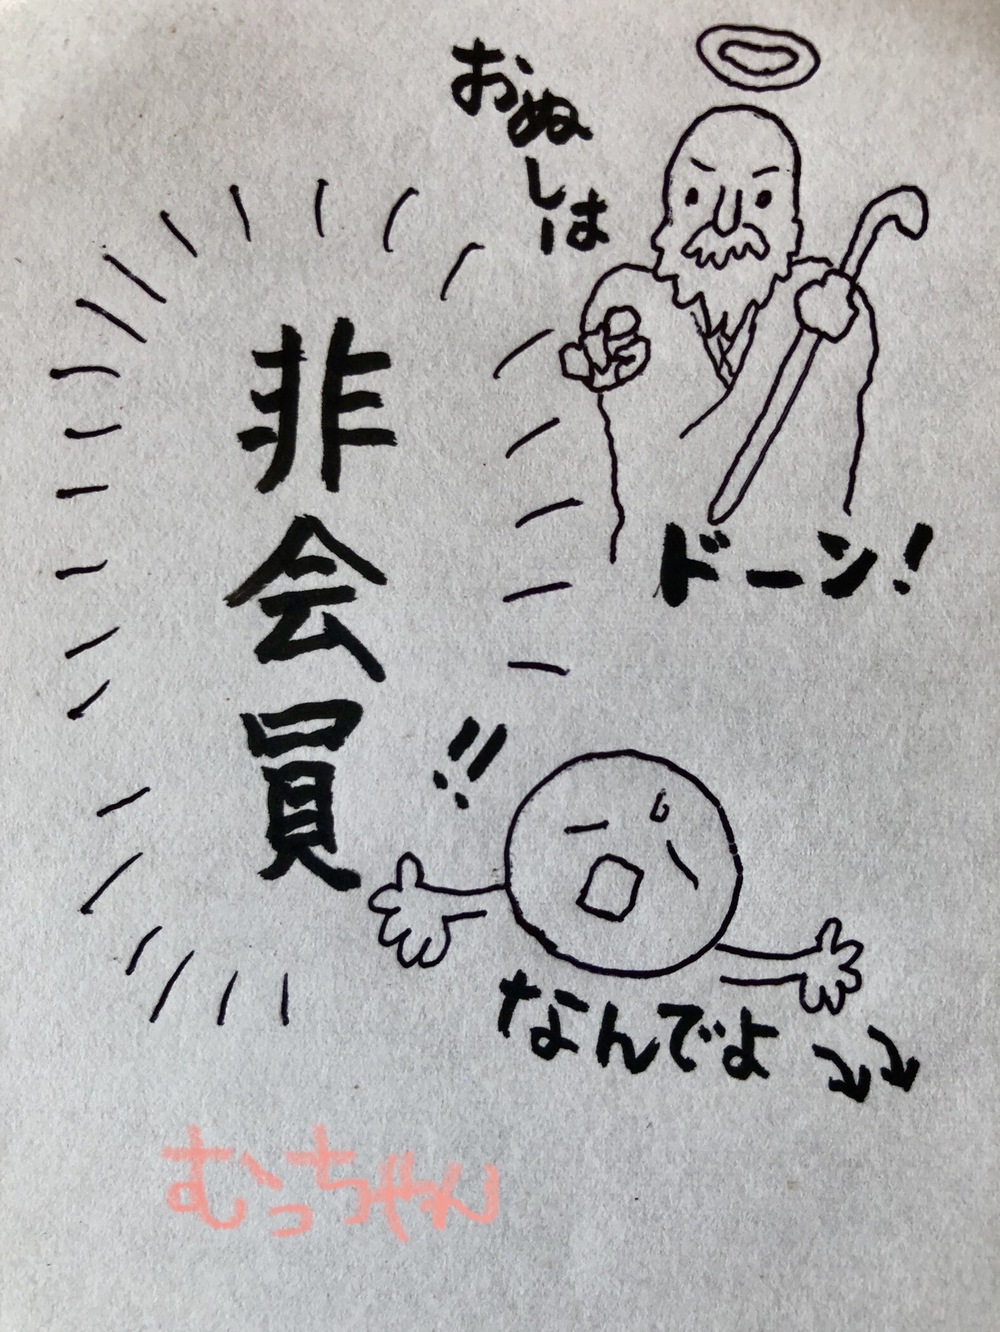 おぬしは
非会員
ドーン!
!!
なんでよ
むっちゃん